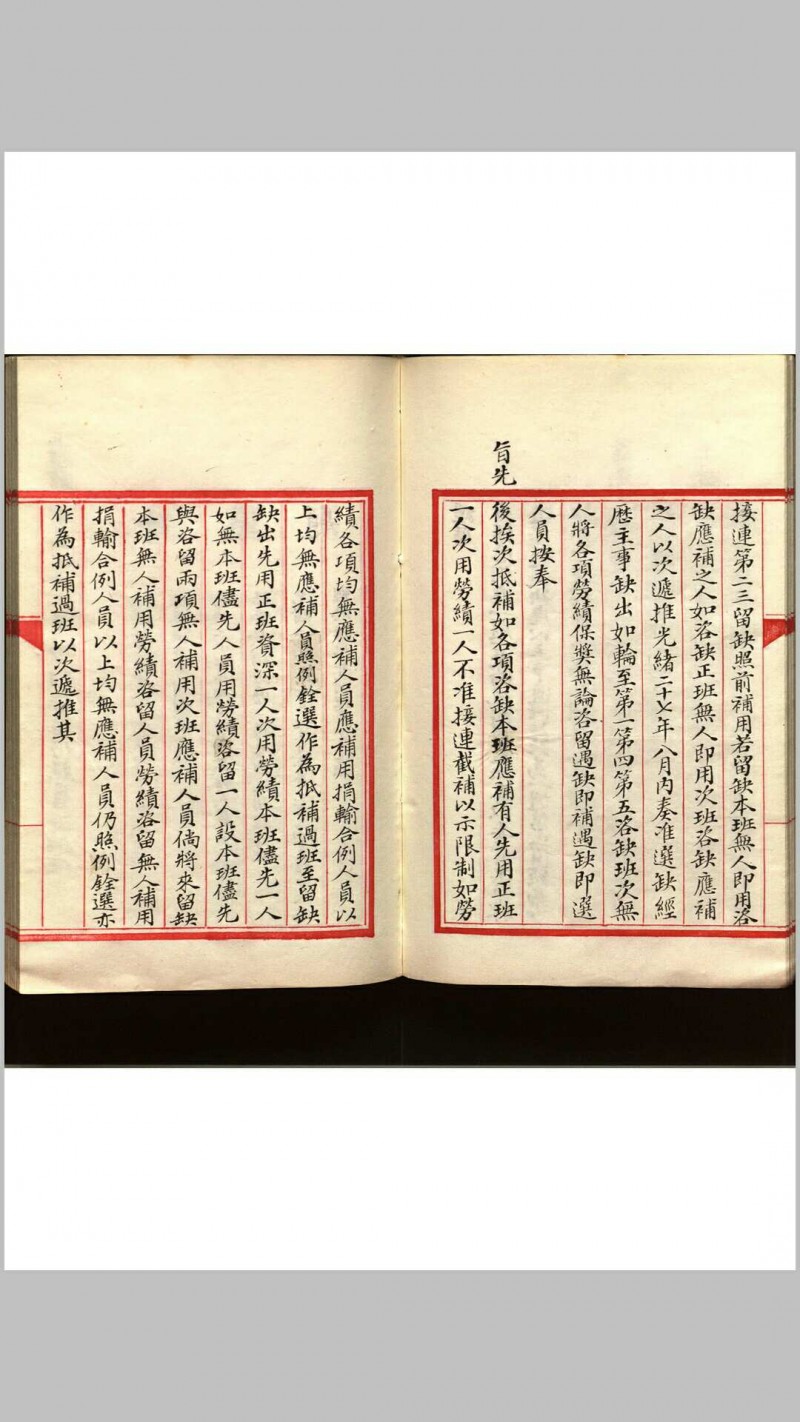 接連第二三留缺照前補用若留缺本班無人即用咨
缺應補之人如咨缺正班無人即用次班咨缺應補
之人以次遞推光緒二十七年八月内奏准選缺經
歷主事缺出如輪至第一第四第五咨缺班次無
人將各項勞績保獎無論咨留遇缺即補遇缺即選
人員按奉
旨先
後挨次抵補如各項咨缺本班應補有人先用正班
一人次用勞績一人不准接連截補以示限制如勞
績各項均無應補人員應補用捐輸合例人員以
上均無應補人員照例銓選作為抵補過班至留缺
缺出先用正班資深一人次用勞績本班儘先一人
如無本班儘先人員用勞績咨留一人設本班儘先
與咨留兩項無人補用次班應補人員倘將來留缺
本班無人補用勞績咨留人員勞績咨留無人補用
捐輸合例人員以上均無應補人員仍照例銓選亦
作為抵補過班以次遞推其